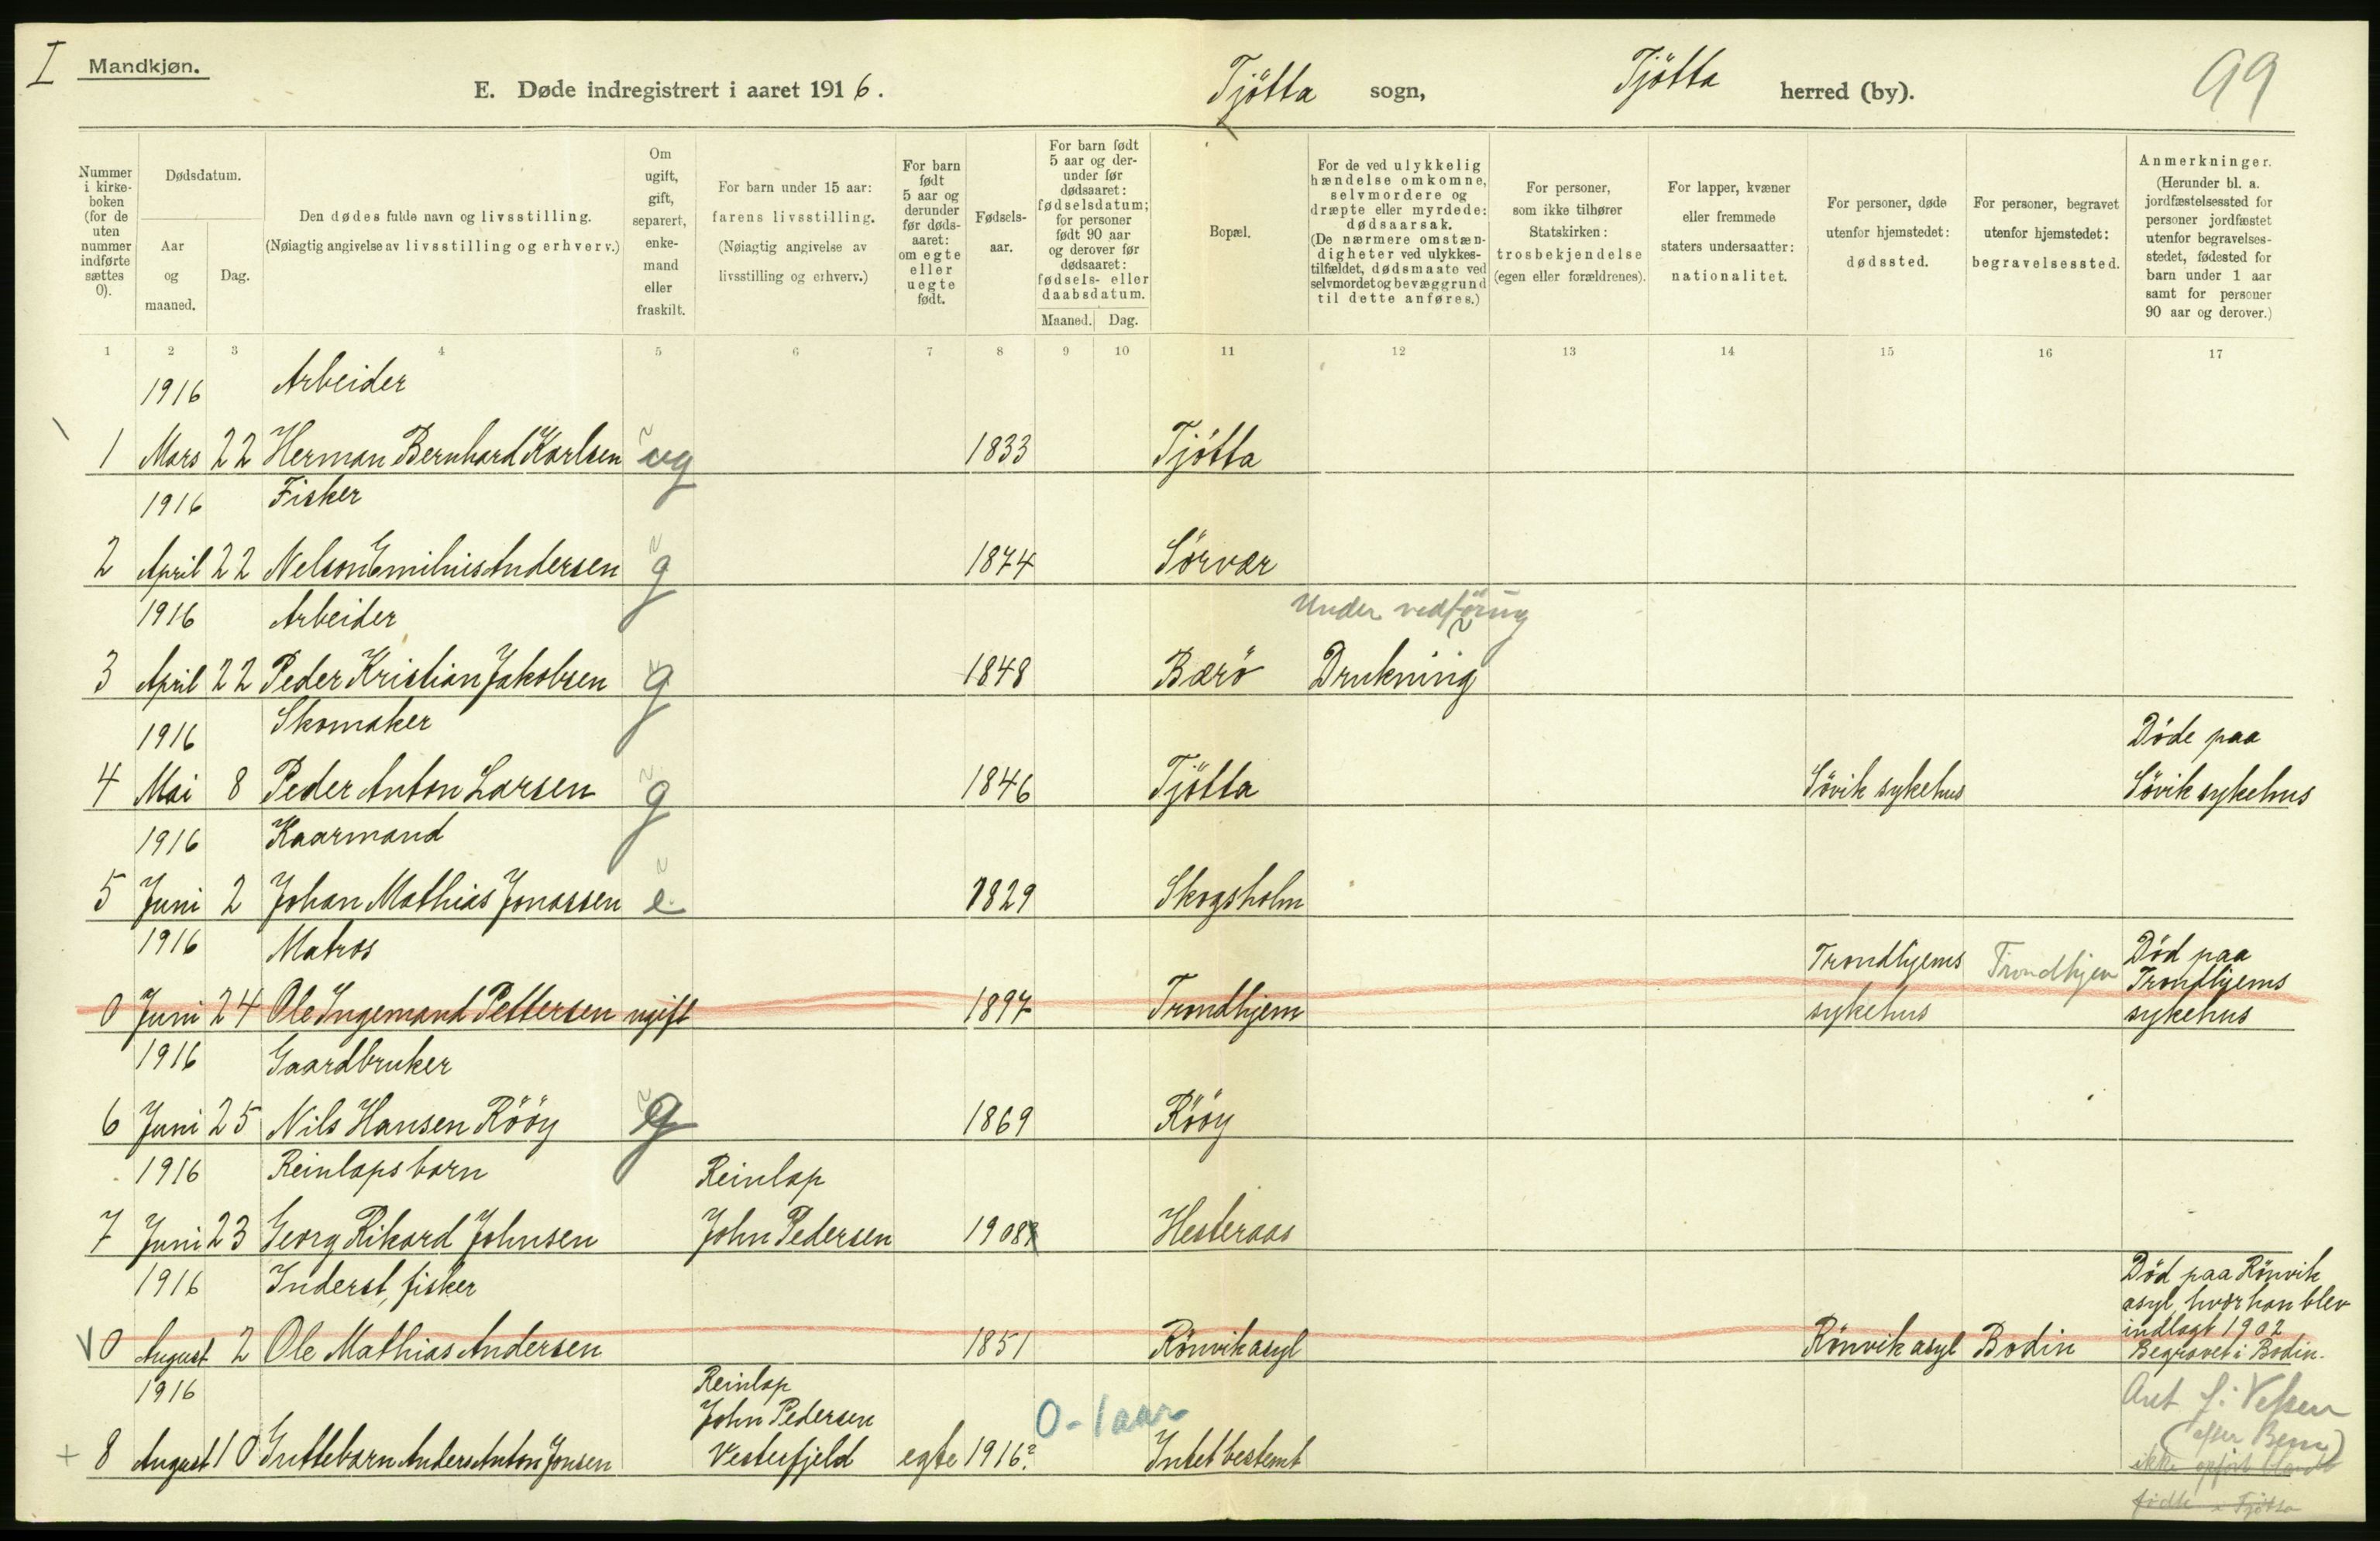 I Mandkjøn.
E. Døde indregistrert i aaret 1916. Tjötta sogn, Tjötta herred (by). 99
Nummer i kirke- boken (for de uten nummer indførte sættes 0).
Dødsdatum.
Aar og maaned.
Dag.
Den dødes fulde navn og livsstilling.
(Nøiagtig angivelse av livsstilling og erhverv.)
Om ugift, gift, separert, enke- mand eller fraskilt.
For barn under 15 aar:
farens livsstilling.
(Nøiagtig angivelse av
livsstilling og erhverv.)
For barn født 5 aar og derunder før døds- aaret: om egte eller uegte født.
Fødsels- aar.
For barn født 5 aar og der- under før dødsaaret: fødselsdatum; for personer født 90 aar og derover før dødsaaret: fødsels- eller daabsdatum.
Maaned. Dag.
Bopæl.
For de ved ulykkelig hændelse omkomne, selvmordere og dræpte eller myrdede: dødsaarsak. (De nærmere omstæn- digheter ved ulykkes- tilfældet, dødsmaate ved selvmordet og bevæggrund til dette anføres.)
For personer, som ikke tilhører Statskirken: trosbekjendelse (egen eller forældrenes).
For lapper, kvæner eller fremmede staters undersaatter: nationalitet.
For personer, døde utenfor hjemstedet: dødssted.
For personer, begravet utenfor hjemstedet: begravelsessted.
Anmerkninger.
(Herunder bl. a. jordfæstelsessted for personer jordfæstet utenfor begravelses- stedet, fødested for barn under 1 aar samt for personer 90 aar og derover.)
1 2 3 4 5 6 7 8 9 10 11 12 13 14 15 16 17
1916 Arbeider
1 Mars 22 Herman Bernhard Karlsen ug 1833 Tjötta
1916 Fisker
2 April 22 Nelson Emilius Andersen g 1874 Sörvær
1916 Arbeider Under vedföring
3 April 22 Peder Kristian Jakobsen g 1848 Bærö Drukning
1916 Skomaker Döde paa
4 Mai 8 Peder Anton Larsen g 1846 Tjötta Sövik sykehus Sövik sykehus
1916 Kaarmand
5 Juni 2 Johan Mathias Jonassen e. 1829 Skogsholm
1916 Matros Trondhjems Trondhjem Död paa
Trondhjems
0 Juni 24 Ole Ingemand Pettersen ugift 1897 Trondhjem sykehus sykehus
1916 Gaardbruker
6 Juni 25 Nils Hansen Rööy g 1869 Rööy
1916 Reinlapsbarn Reinlap
7 Juni 23 Georg Rikard Johnsen John Pedersen 1908 Hesteraas
1916 Inderst, fisker Död paa Rönvik
asyl, hvor han blev
indlagt 1902
V 0 August 2 Ole Mathias Andersen 1851 Rönvik asyl Rönvik asyl Bodin Begravet i Bodin.
1916 Reinlap
John Pedersen 0-1 aar
+ 8 August 10 Guttebarn Anders Anton Jonsen Vesterfjeld egte 1916? Intet bestemt
(efter Bem)
ikke opført blandt
födte i Tjötta